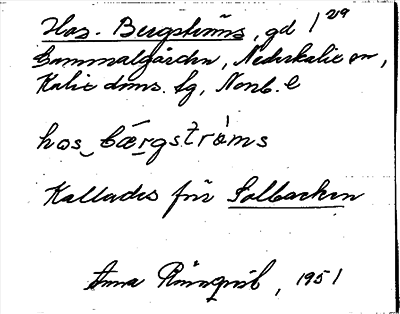 Hos. Bergströms, gd 1/29
Gammalgården, Nederkalix sn,
Kalix dms. tg, Norrb. l
hos bærgstrøms
Kallades för Solbacken
Anna Rönnqvist, 1951